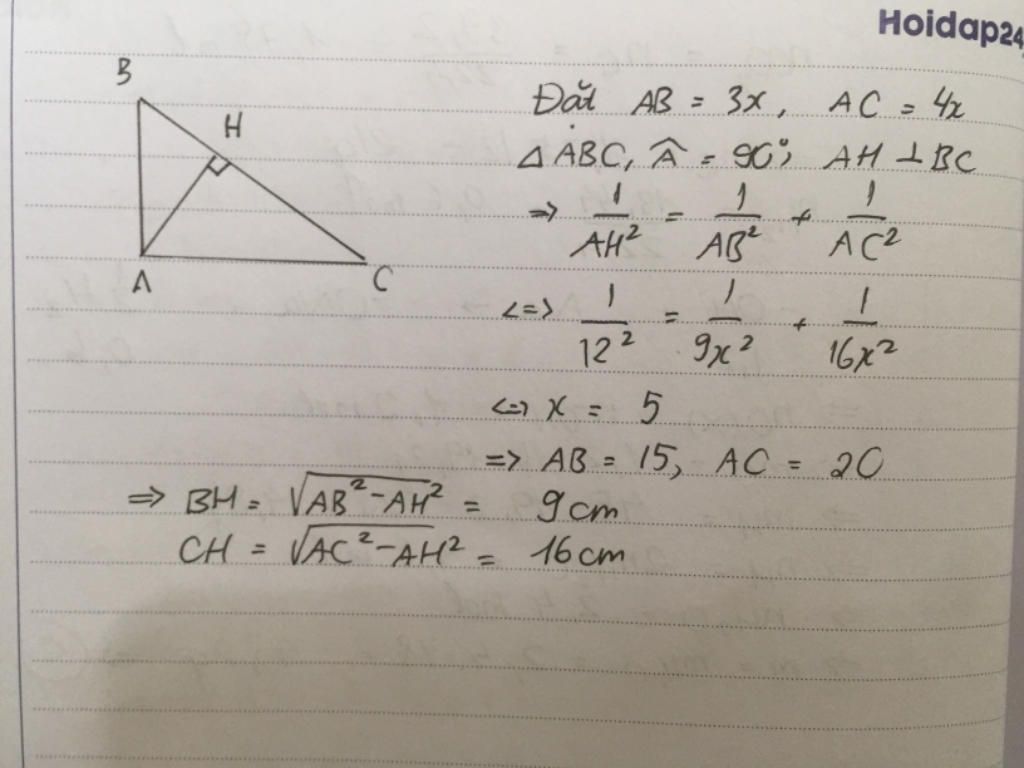 Hoidap24
B
H
A
C
Đặt AB = 3x, AC = 4x
△ABC, Â = 90°, AH ⊥ BC
=> 1/AH² = 1/AB² + 1/AC²
<=> 1/12² = 1/9x² + 1/16x²
<=> x = 5
=> AB = 15, AC = 20
=> BH = √AB²-AH² = 9cm
CH = √AC²-AH² = 16cm